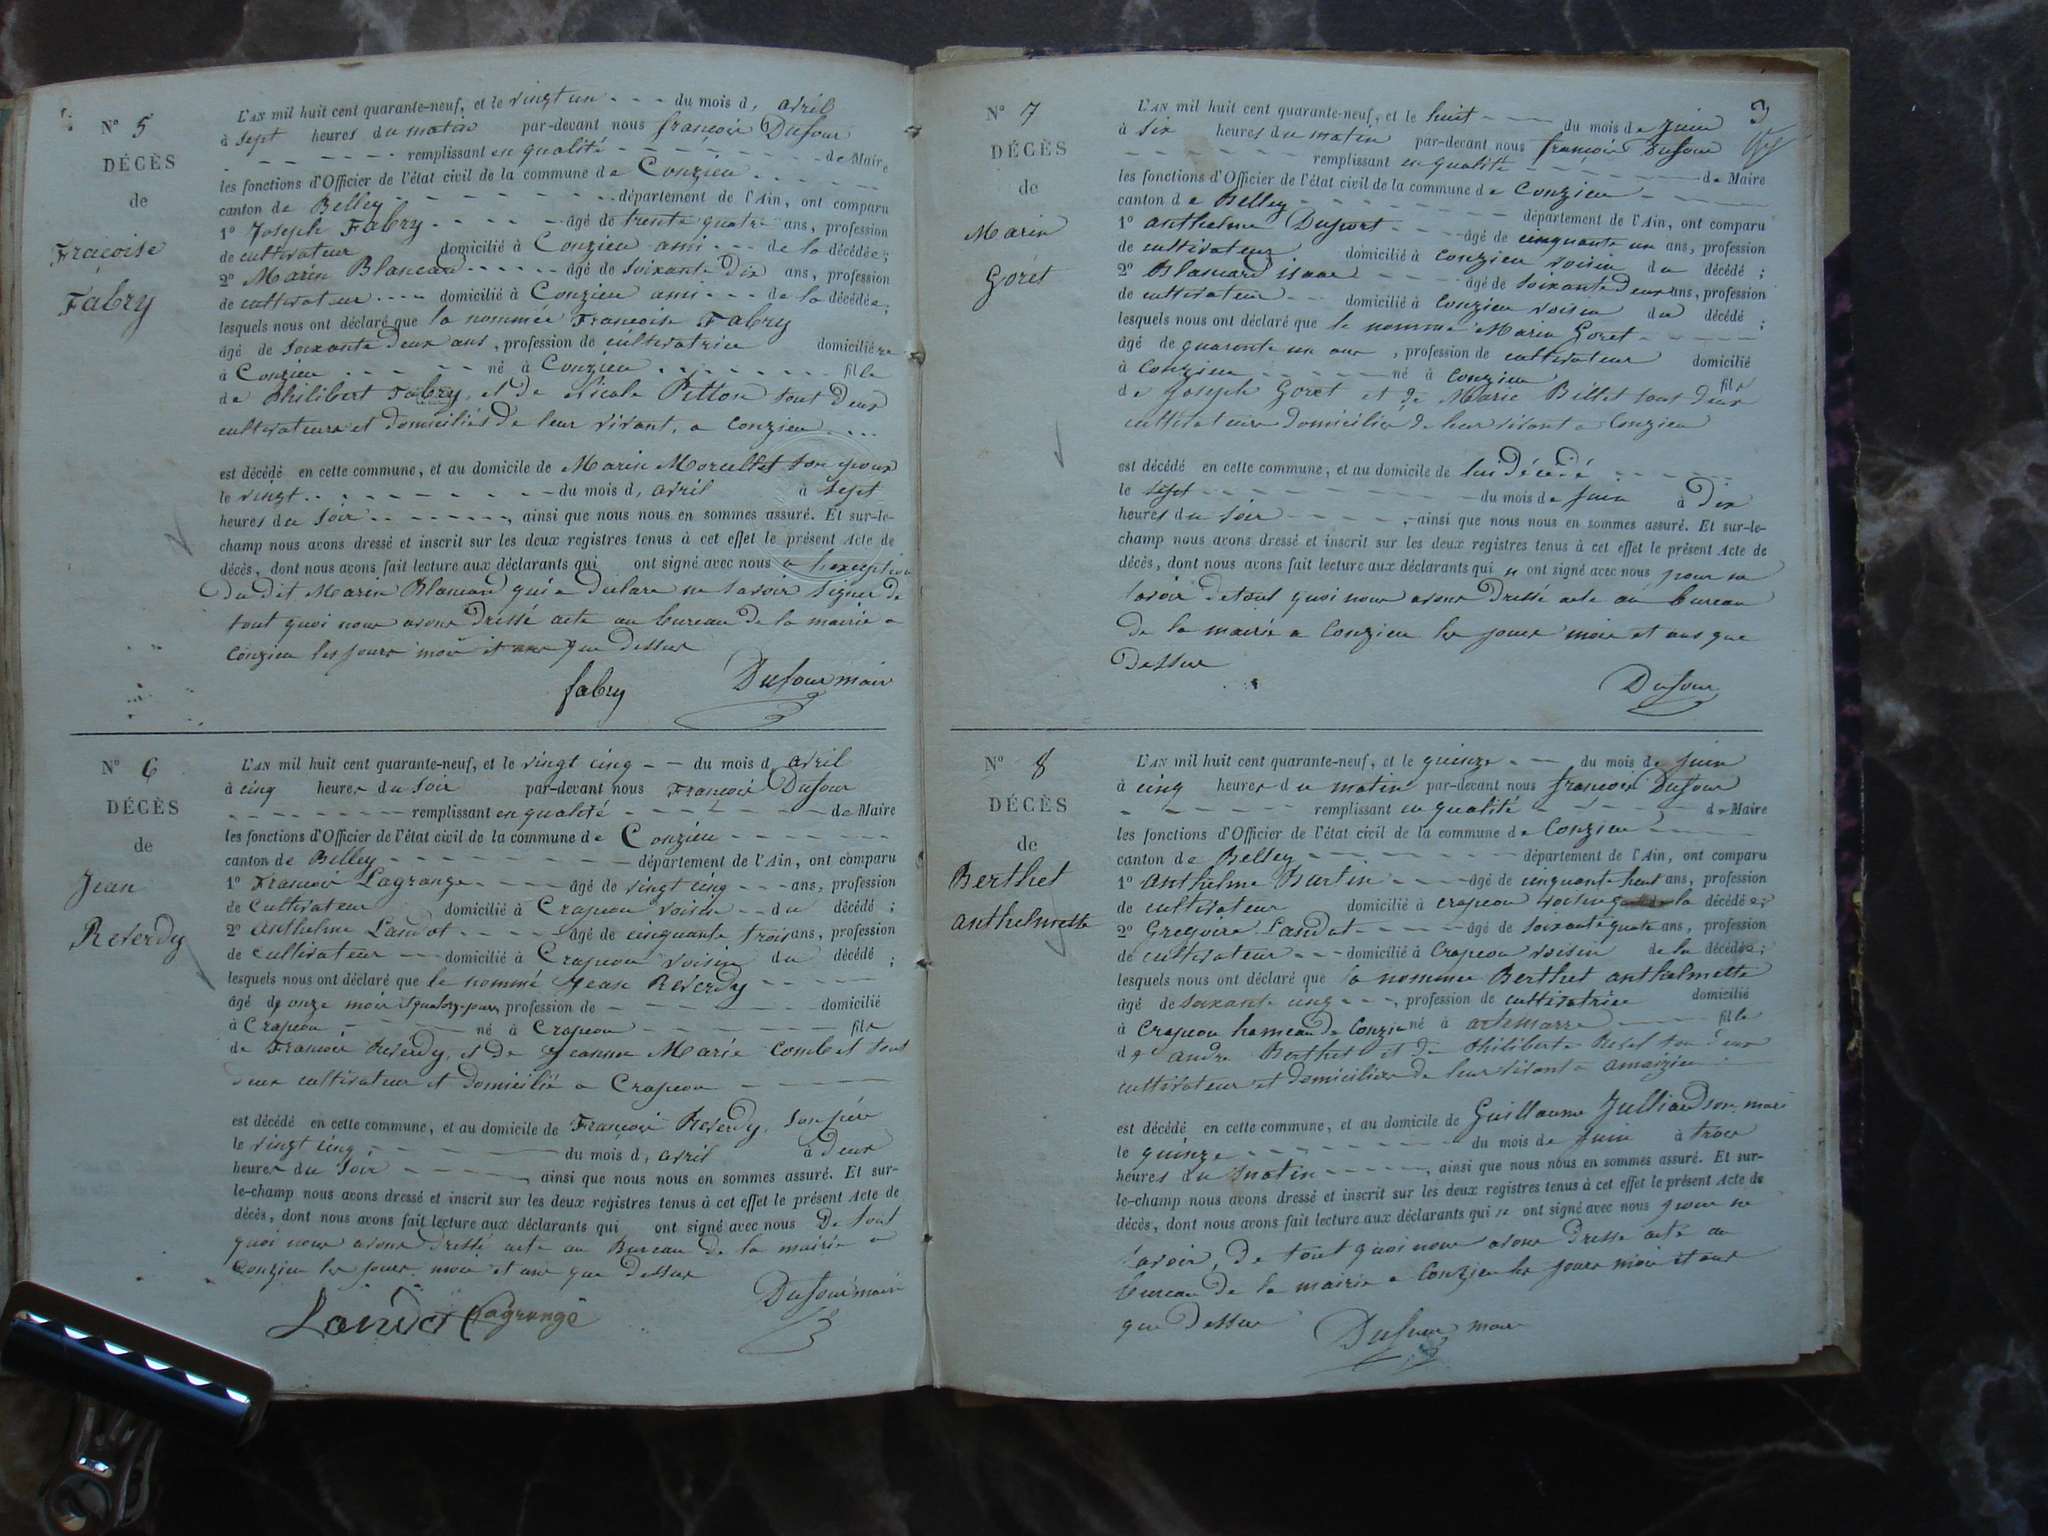 N° 5
DÉCÈS
de
Fraçoise
Fabry
L'AN mil huit cent quarante-neuf, et le vingt un - - - du mois d, avril
à sept heures du matin par-devant nous françois Dufour
remplissant en qualité de Maire
les fonctions d'Officier de l'état civil de la commune de Conzieu
canton de Belley département de l'Ain, ont comparu
1° Joseph Fabry âgé de trente quatre ans, profession
de cultivateur domicilié à Conzieu ami de la décédée;
2° Marin Blancard âgé de soixante dix ans, profession
de cultivateur domicilié à Conzieu ami de la décédée;
lesquels nous ont déclaré que la nommée Francoise Fabry
âgé de soixante deux ans, profession de cultivatrice domiciliée
à Conzieu né à Conzieu fille
de Philibert Fabry, et de Nicole Pitton tout deux
cultivateurs et domiciliés de leur vivant, a Conzieu
est décédé en cette commune, et au domicile de Marin son epoux
le vingt du mois d, avril à sept
heures du soir, ainsi que nous nous en sommes assuré. Et sur-le-
champ nous avons dressé et inscrit sur les deux registres tenus à cet effet le présent Acte de
décès, dont nous avons fait lecture aux déclarants qui ont signé avec nous a l'exception
du dit Marin Blancard qui a declare ne savoir signer de
tout quoi nous avons dressé acte au bureau de la mairie a
Conzieu les jours mois et ans que dessus
fabry Dufour mair
N° 6
DÉCÈS
de
Jean
Reverdy
L'AN mil huit cent quarante-neuf, et le vingt cinq - - du mois d avril
à cinq heures du soir par-devant nous François Dufour
remplissant en qualité de Maire
les fonctions d'Officier de l'état civil de la commune de Conzieu
canton de Belley département de l'Ain, ont comparu
1° Francois Lagrange âgé de vingt cinq ans, profession
de Cultivateur domicilié à Crapeou voisin du décédé;
2° anthelme Landot âgé de cinquante trois ans, profession
de Cultivateur domicilié à Crapeou voisin du décédé;
lesquels nous ont déclaré que le nommé Jean Reverdy
âgé de onze mois profession de domicilié
à Crapeou né à Crapeou fils
de Francois Reverdy, et de Jeanne Marie Combet tout
deux cultivateur et domicilié a Crapeou
est décédé en cette commune, et au domicile de Francois Reverdy, son père
le vingt cinq du mois d, avril à deux
heures du soir ainsi que nous nous en sommes assuré. Et sur-
le-champ nous avons dressé et inscrit sur les deux registres tenus à cet effet le présent Acte de
décès, dont nous avons fait lecture aux déclarants qui ont signé avec nous De tout
quoi nous avons dressé acte au Bureau de la mairie a
Conzieu les jours mois et ans que dessus
Landot Lagrange Dufour mair
3
N° 7
DÉCÈS
de
Marin
Goret
L'AN mil huit cent quarante-neuf, et le huit - - - du mois de Juin
à six heures du matin par-devant nous françois Dufour
remplissant en qualité de Maire
les fonctions d'Officier de l'état civil de la commune de Conzieu
canton de Belley département de l'Ain, ont comparu
1° anthelme Duport âgé de cinquante un ans, profession
de cultivateur domicilié à Conzieu voisin du décédé;
2° Blancard isaac âgé de soixante deux ans, profession
de cultivateur domicilié à Conzieu voisin du décédé;
lesquels nous ont déclaré que le nommé Marin Goret
âgé de quarente un ans, profession de cultivateur domicilié
à Conzieu né à Conzieu fils
de Joseph Goret et de Marie Billet tout deux
cultivateurs domiciliés de leur vivant a Conzieu
est décédé en cette commune, et au domicile de lui décédé
le sept du mois de Juin à dix
heures du soir, ainsi que nous nous en sommes assuré. Et sur-le-
champ nous avons dressé et inscrit sur les deux registres tenus à cet effet le présent Acte de
décès, dont nous avons fait lecture aux déclarants qui n ont signé avec nous pour ne
savoir de tout quoi nous avons dressé acte au bureau
de la mairie a Conzieu les jours mois et ans que
dessus
Dufour
N° 8
DÉCÈS
de
Berthet
anthelmette
L'AN mil huit cent quarante-neuf, et le quinze - - du mois de Juin
à cinq heures du matin par-devant nous francois Dufour
remplissant en qualité de Maire
les fonctions d'Officier de l'état civil de la commune de Conzieu
canton de Belley département de l'Ain, ont comparu
1° anthelme âgé de cinquante huit ans, profession
de cultivateur domicilié à Crapeou voisin de la décédée;
2° Gregoire Landot âgé de soixante quatre ans, profession
de cultivateur domicilié à Crapeou voisin de la décédée;
lesquels nous ont déclaré que la nommee Berthet anthelmette
âgé de soixante cinq, profession de cultivatrice domicilié
à Crapeou hameau de Conzieu né à artemarre fille
de andre Berthet et de Philiberte tou deux
cultivateur et domiciliés de leur vivant a
est décédé en cette commune, et au domicile de Guillaume Julliard son mari
le quinze du mois de Juin à trois
heures du matin, ainsi que nous nous en sommes assuré. Et sur-
le-champ nous avons dressé et inscrit sur les deux registres tenus à cet effet le présent Acte de
décès, dont nous avons fait lecture aux déclarants qui n ont signé avec nous pour ne
savoir, de tout quoi nous avons dresse acte au
bureau de la mairie a Conzieu les jours mois et ans
que dessus Dufour mair